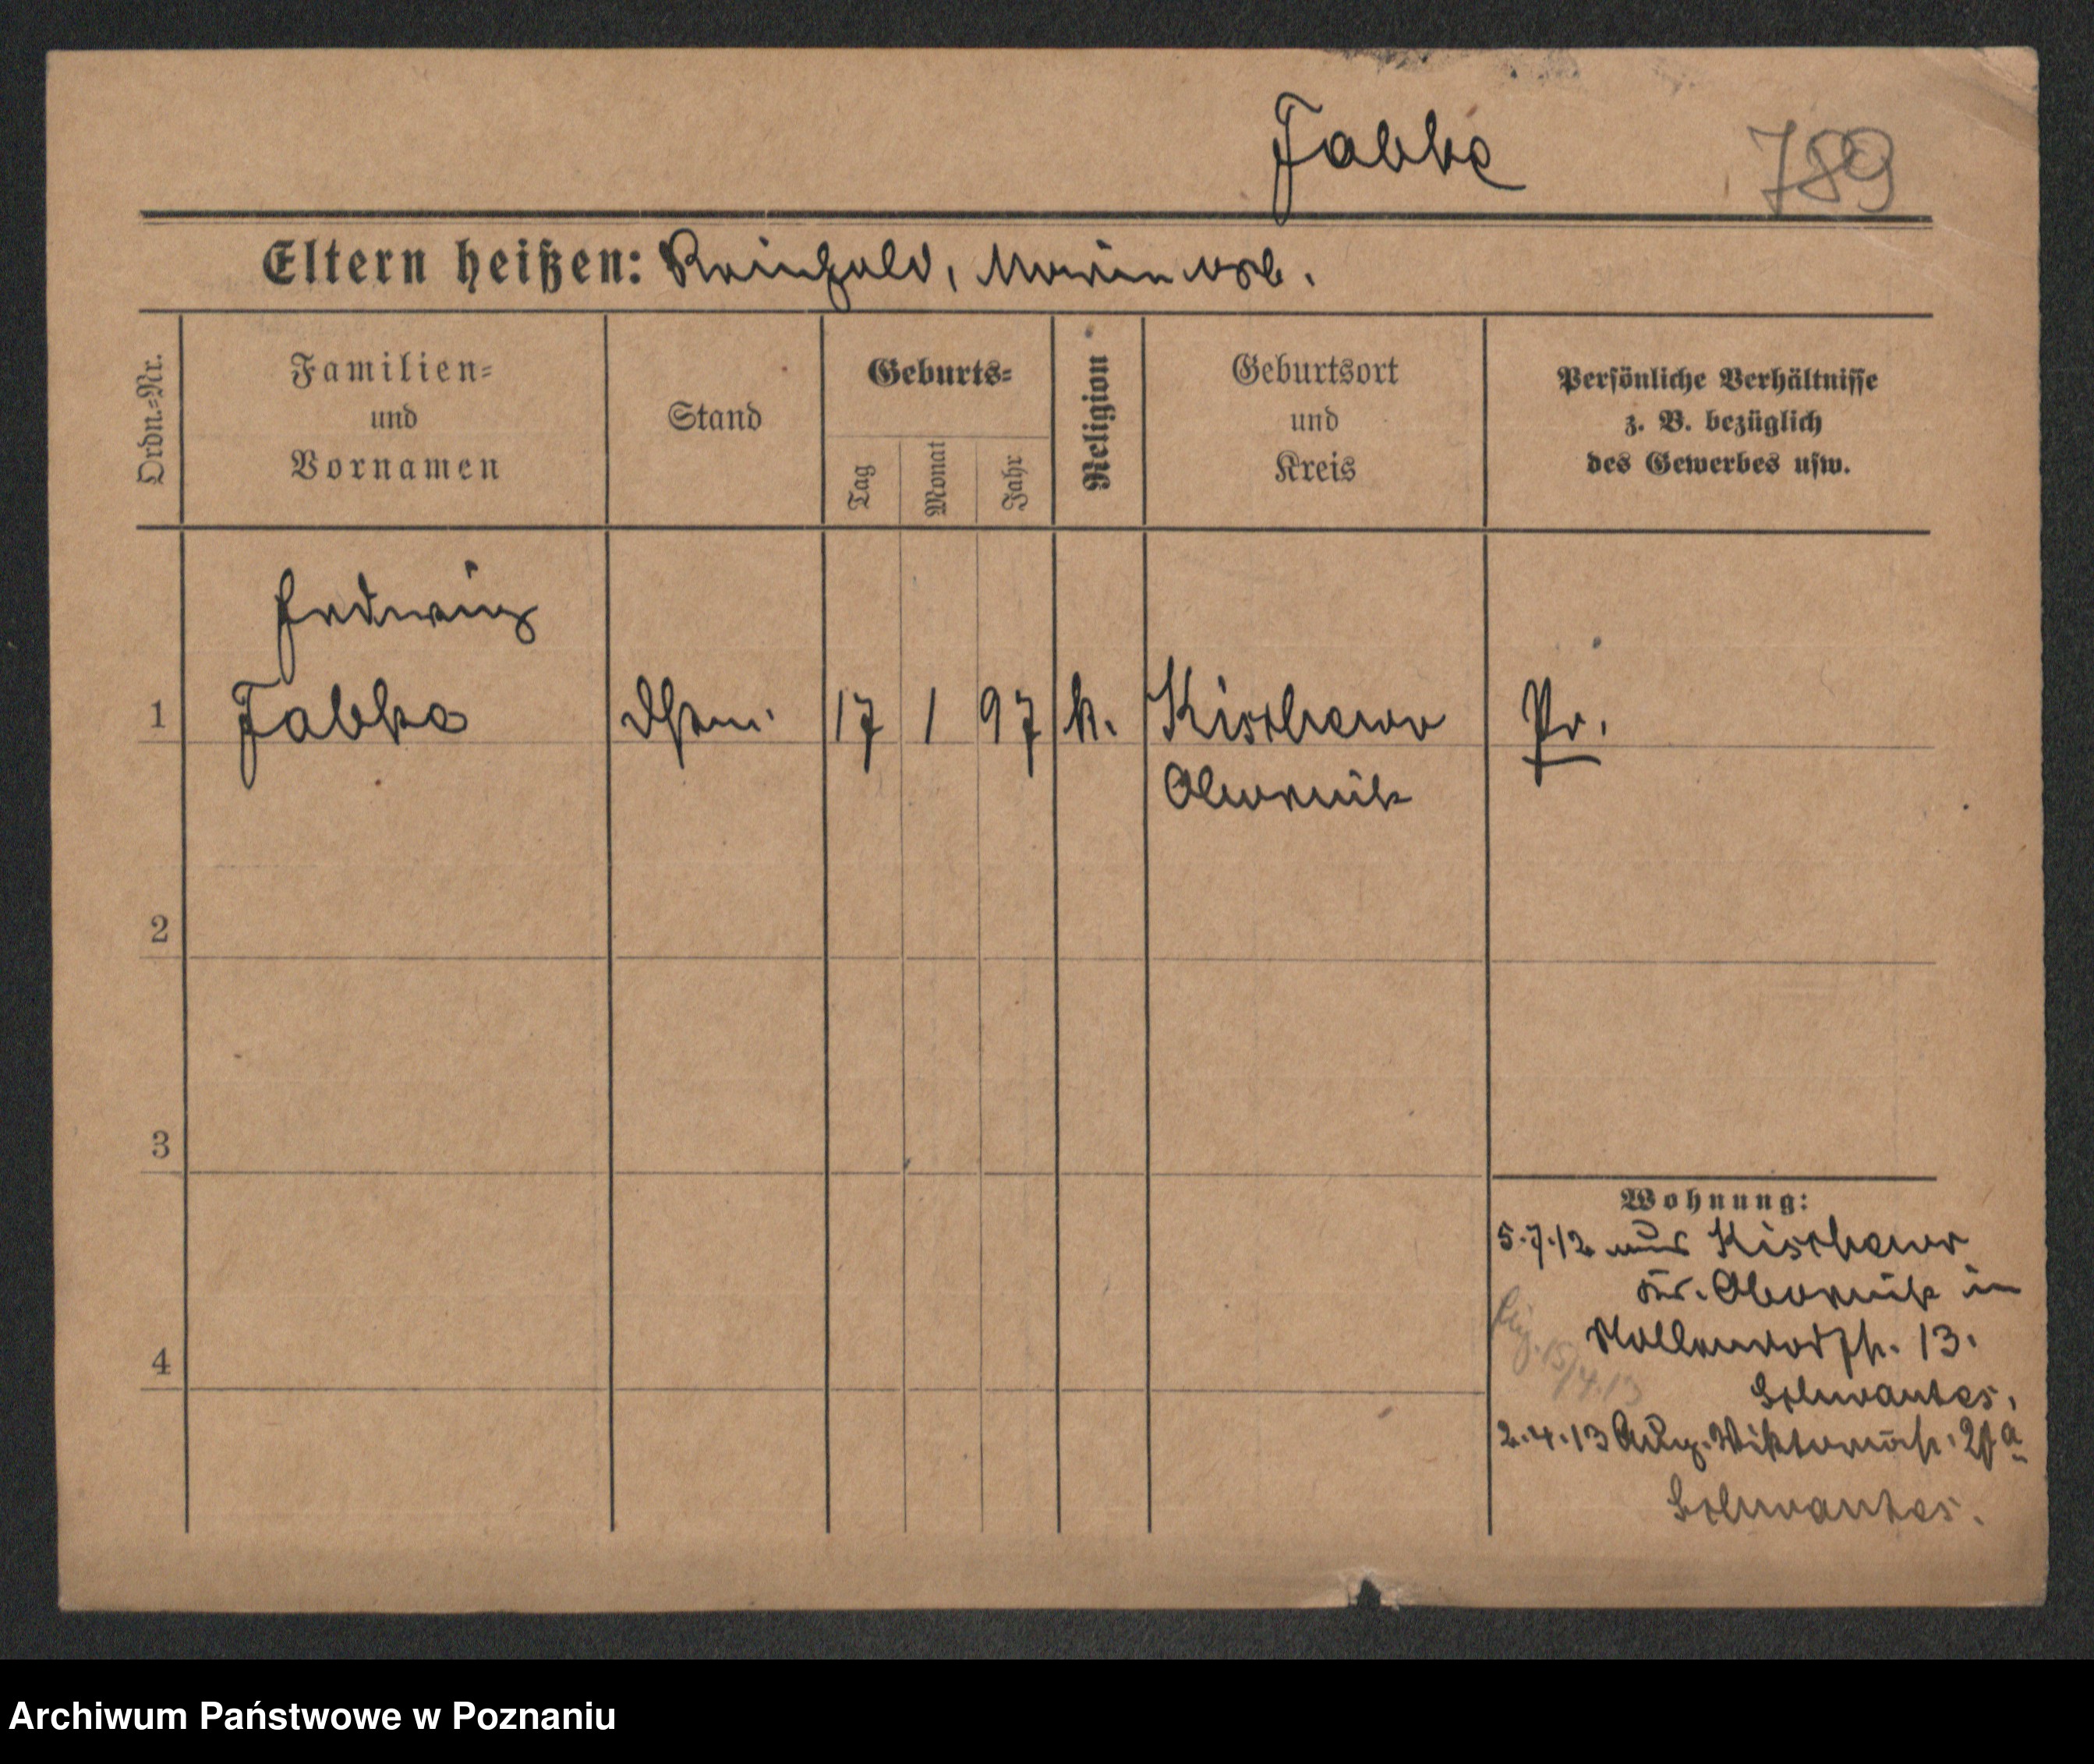 Fabke
789
Eltern heißen: Reinhold, Marie vrb.
Ordn.-Nr.
Familien-
und
Vornamen
Stand
Geburts-
Tag
Monat
Jahr
Religion
Geburtsort
und
Kreis
Persönliche Verhältnisse
z. B. bezüglich
des Gewerbes usw.
Hedwig
1 Fabke 17 1 97 k. Kischewo Pr.
Obornik
2
3
4
Wohnung:
5.7.12 aus Kischewo
Kr. Obornik in
13.
Schwantes.
2.4.13 Aug. Viktoriastr.
15/4.13
Schwantes.
Archiwum Państwowe w Poznaniu